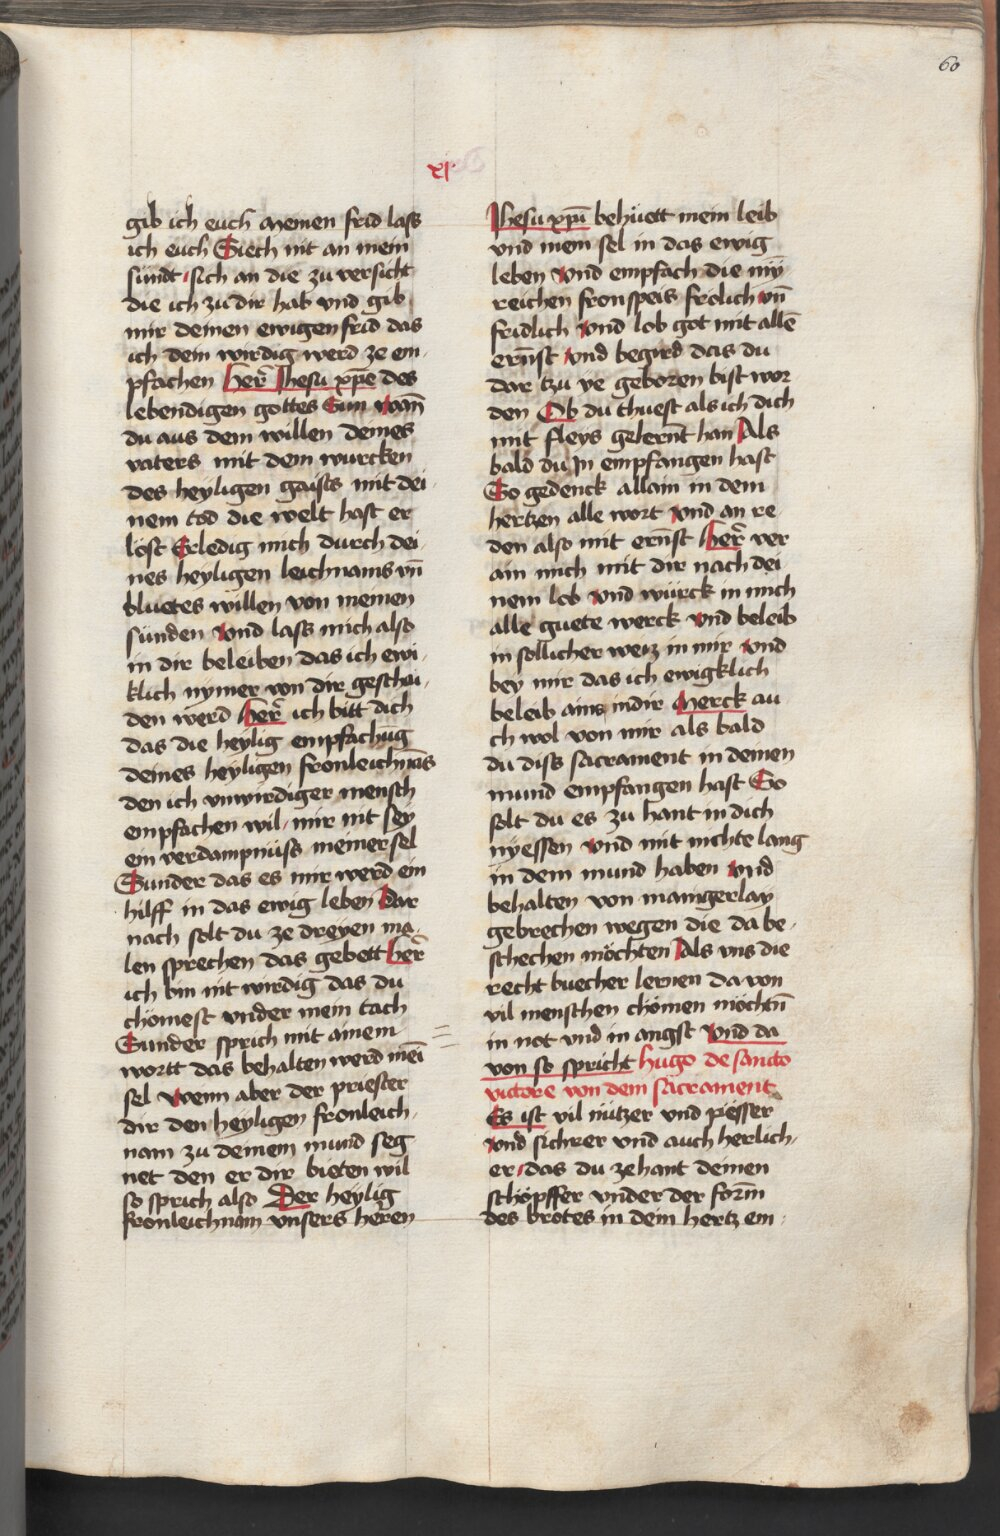 60
xj
gib ich euch meinen frid lass
ich euch Siech nit an mein
sündt sich an die zu versicht
die ich zu dir hab vnd gib
mir deinen ewigen frid das
ich dein wirdig werd ze en
pfachen Her̄ Jhesu xp̄e des
lebendigen gottes Sun wan̄
du aus dem willen deines
vaters mit dem wurcken
des heyligen gaists mit dei
nem tod die welt hast er
löst Erledig mich durch dei
nes heyligen leichnams vn̄
bluetes willen von meinen
sünden Vnd lass mich also
in dir beleiben das ich ewi
klich nymer von dir geschai
den werd Her̄ ich bitt dich
das die heylig empfachūg
deines heyligen fronleichnās
den ich vnwirdiger mensch
empfachen wil mir nit sey
ein verdampnüss meiner sel
Sunder das es mir werd ein
hilff in das ewig leben Dar
nach solt du ze dreyen ma
len sprechen das gebett Her̄
ich bin nit wirdig das du
chömest vnder mein tach
Sunder sprich mit ainem
wortt das behalten werd mei̅
sel Wenn aber der priester
dir den heyligen fronleich
nam zu deinem mund seg
net den er dir bieten wil
so sprich also Der heylig
fronleichnam vnsers heren
Jhesu xp̄i behüett mein leib
vnd mein sel in das ewig
leben Vnd empfach die my̅
reichen fronspeis frölich vn̄
fridlich Vnd lob got mit allē
ern̄st Vnd begird das du
dar tzu ye geboren bist wor
den Ob du thuest als ich dich
mit fleys gelern̄t han Als
bald du Jn empfangen hast
So gedenck allain in dem
hertzen alle wort Vnd an re
den also mit ern̄st Her̄ ver
ain mich mit dir nach dei
nem lob Vnd würck in mich
alle guete werck Vnd beleib
in sollicher weiz in mir Vnd
bey mir das ich ewigklich
beleib ains in dir Merck au
ch wol von mir als bald
du diss sacrament in deinen
mund empfangen hast So
solt du es zu hant in dich
nyessen Vnd mit nichte lang
in dem mund haben Vnd
behalten von manigerlay
gebrechen wegen die da be
schechen möchten Als vns die
recht buecher lernen da von
vil menschen chömen möchtn̄
in not vnd in angst Vnd da
von so spricht Hugo de sancto
victore von dem sacrament
Es ist vil nützer vnd pesser
Vnd sichrer vnd auch herlich
er das du ze hant deinen
schöpffer vnder der form̄
des brotes in dein hertz em